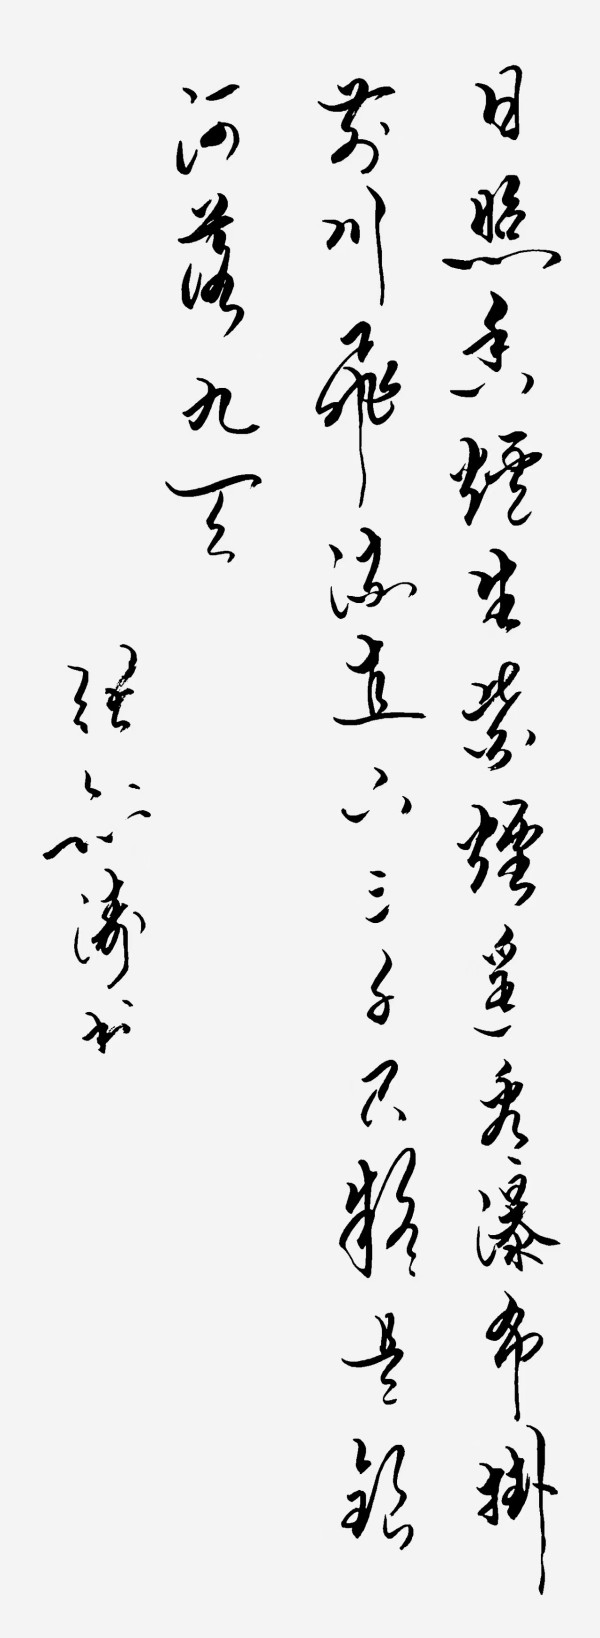 日照香爐生紫煙遙看瀑布掛
前川飛流直下三千尺疑是銀
河落九天
張 濤书